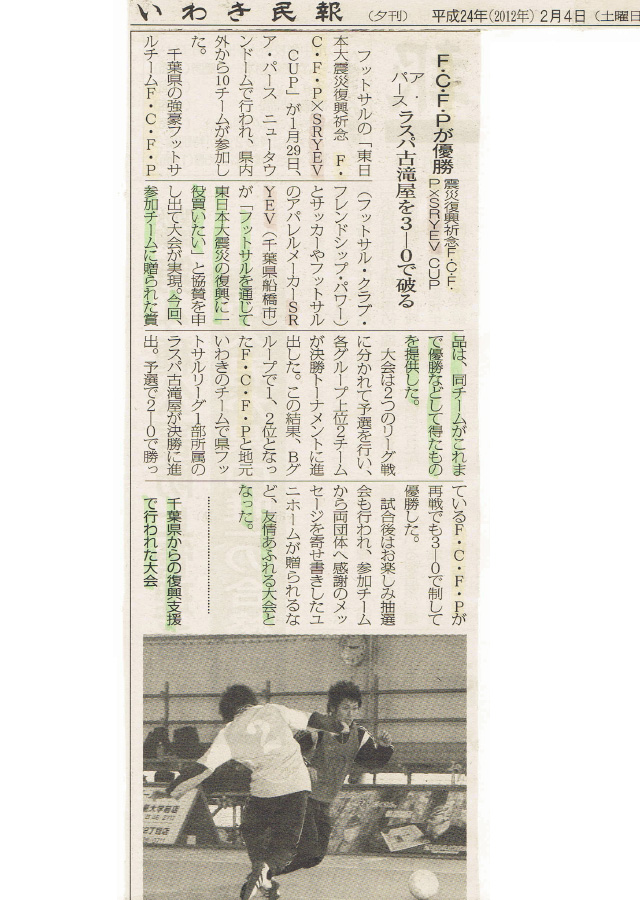 いわき民報
（夕刊）
平成24年（2012年）2月4日（土曜日
F・C・F・Pが優勝
震災復興祈念F・C・F・
P×SRYEV CUP
ア・
パース
ラスパ古滝屋を3―0で破る
フットサルの「東日
本大震災復興祈念　F・
C・F・P×SRYEV
CUP」が1月29日、
ア・パース　ニュータウ
ンドームで行われ、県内
外から10チームが参加し
た。
千葉県の強豪フットサ
ルチームF・C・F・P
（フットサル・クラブ・
フレンドシップ・パワー）
とサッカーやフットサル
のアパレルメーカーSR
YEV（千葉県船橋市）
が「フットサルを通じて
東日本大震災の復興に一
役買いたい」と協賛を申
し出て大会が実現。今回、
参加チームに贈られた賞
品は、同チームがこれま
で優勝などして得たもの
を提供した。
大会は2つのリーグ戦
に分かれて予選を行い、
各グループ上位2チーム
が決勝トーナメントに進
出した。この結果、Bグ
ループで1、2位となっ
たF・C・F・Pと地元
いわきのチームで県フッ
トサルリーグ1部所属の
ラスパ古滝屋が決勝に進
出。予選で2―0で勝っ
ているF・C・F・Pが
再戦でも3―0で制して
優勝した。
試合後はお楽しみ抽選
会も行われ、参加チーム
から両団体へ感謝のメッ
セージを寄せ書きしたユ
ニホームが贈られるな
ど、友情あふれる大会と
なった。
千葉県からの復興支援
で行われた大会
2